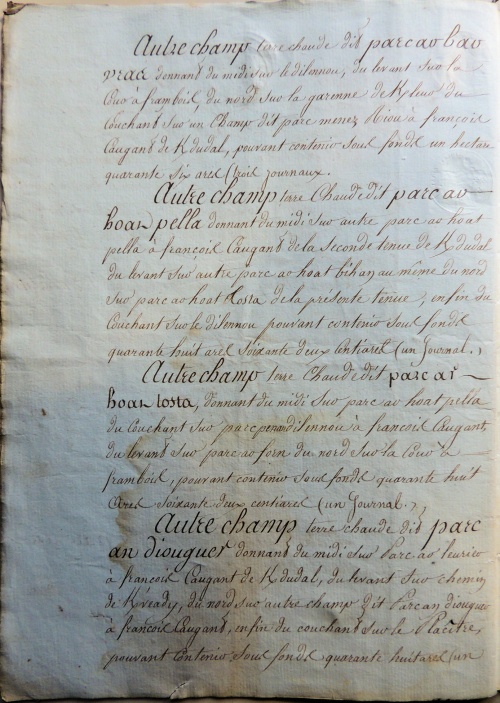 Autre champ terre chaude dit parc ao
donnant du midi sur le dilennou, du levant sur la
à framboil, du nord sur la garenne de du
Couchant sur un Champ dit parc menez à françois
Caugant de K dudal, pouvant contenir sous fonds un hectare
quarante six ares (trois journaux.
Autre champ terre Chaude dit parc ao
hoat pella donnant du midi sur autre parc ao hoat
pella à françois Caugant de la seconde tenue de K dudal
du levant sur autre parc ao hoat bihan au même du nord
sur parc ao hoat tosta de la présente tenue, enfin du
Couchant sur le dilennou pouvant contenir sous fonds
quarante huit ares soixante deux Centiares (un Journal.)
Autre champ terre Chaude dit parc ar
hoat tosta, donnant du midi sur parc ao hoat pella
du Couchant sur parc dilennou à françois Caugant
du levant sur parc ao forn du nord sur la à
framboil, pouvant contenir sous fonds quarante huit
Ares soixante deux centiares (un Journal.)
Autre champ terre chaude dit parc
an diouguel donnant du midi sur Parc ao leurico
à françois Caugant de K dudal, du levant sur chemin
de K ready, du nord sur autre champ dit Parc an diouguel
à françois Caugant, enfin du couchant sur le Placitre,
pouvant Contenir sous fonds quarante huit ares (un